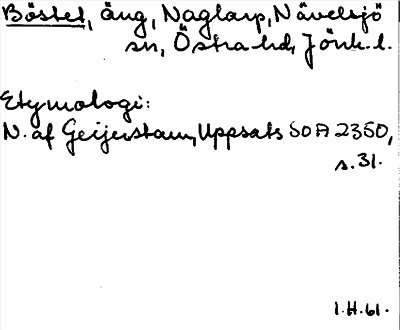 Böstet, äng, Naglarp, Nävelsjö
sn, Östra hd, Jönk. l.
Etymologi:
N. af Geijerstam, Uppsats SOA 2350,
s. 31.
I. H. 61.